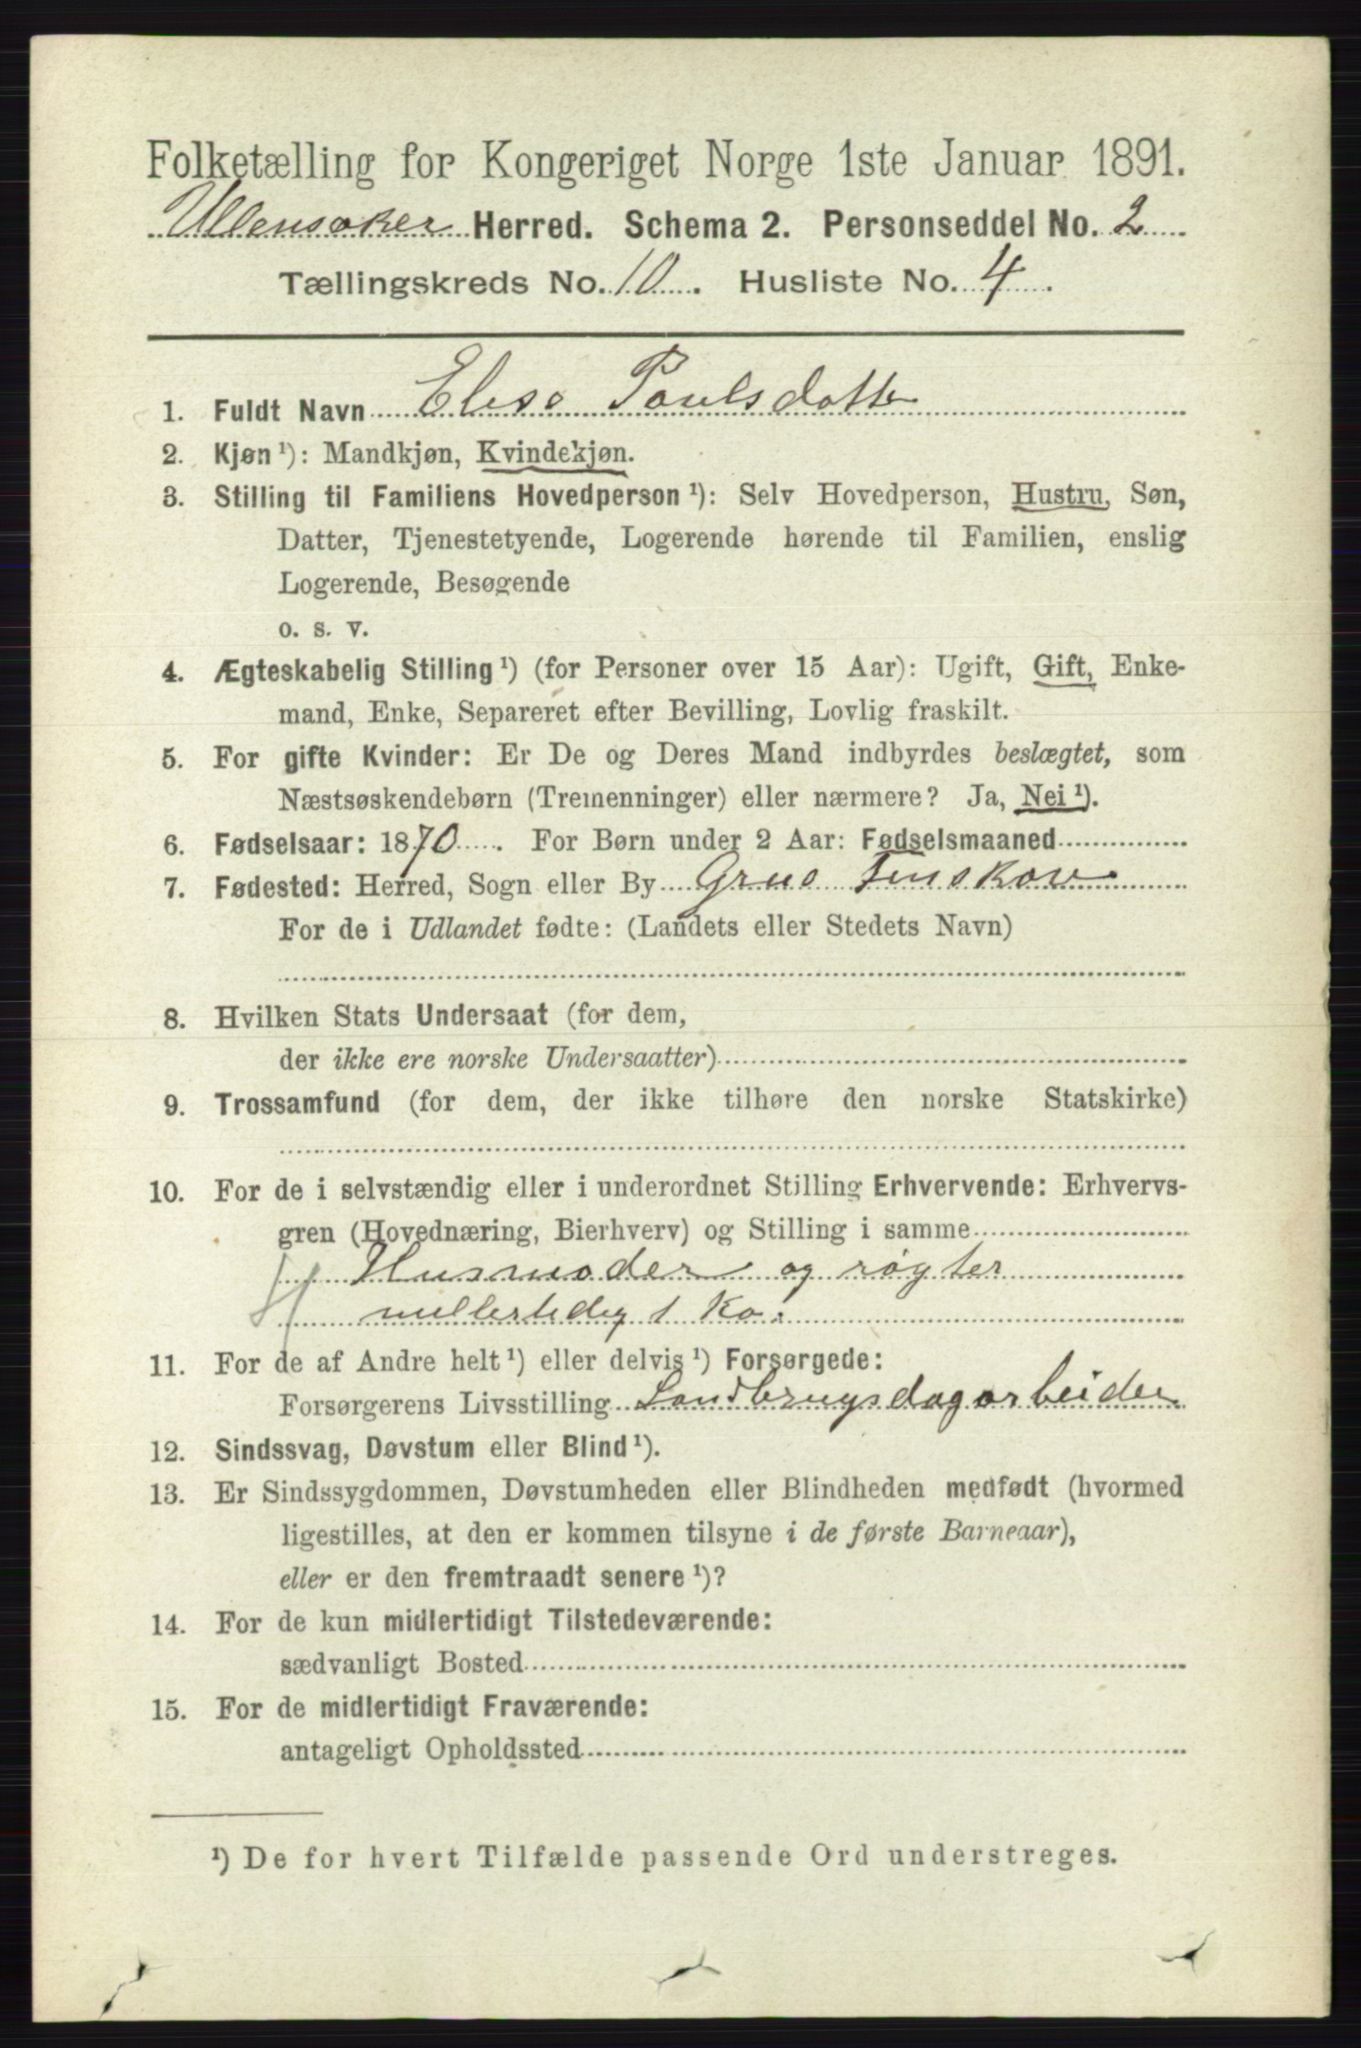 Folketælling for Kongeriget Norge 1ste Januar 1891.
Ullensaker Herred. Schema 2. Personseddel No. 2
Tællingskreds No. 10. Husliste No. 4.
1. Fuldt Navn Elise Paulsdatter
2. Kjøn ¹): Mandkjøn, Kvindekjøn.
3. Stilling til Familiens Hovedperson ¹): Selv Hovedperson, Hustru, Søn,
Datter, Tjenestetyende, Logerende hørende til Familien, enslig
Logerende, Besøgende
o. s. v.
4. Ægteskabelig Stilling ¹) (for Personer over 15 Aar): Ugift, Gift, Enke-
mand, Enke, Separeret efter Bevilling, Lovlig fraskilt.
5. For gifte Kvinder: Er De og Deres Mand indbyrdes beslægtet, som
Næstsøskendebørn (Tremenninger) eller nærmere? Ja, Nei ¹).
6. Fødselsaar: 1870. For Børn under 2 Aar: Fødselsmaaned
7. Fødested: Herred, Sogn eller By Grue Finskov
For de i Udlandet fødte: (Landets eller Stedets Navn)
8. Hvilken Stats Undersaat (for dem,
der ikke ere norske Undersaatter)
9. Trossamfund (for dem, der ikke tilhøre den norske Statskirke)
10. For de i selvstændig eller i underordnet Stilling Erhvervende: Erhvervs-
gren (Hovednæring, Bierhverv) og Stilling i samme
Husmoder og røgter
mellertidig 1 Ko.
11. For de af Andre helt ¹) eller delvis ¹) Forsørgede:
Forsørgerens Livsstilling Landbrugsdagarbeider
12. Sindssvag, Døvstum eller Blind ¹).
13. Er Sindssygdommen, Døvstumheden eller Blindheden medfødt (hvormed
ligestilles, at den er kommen tilsyne i de første Barneaar),
eller er den fremtraadt senere ¹)?
14. For de kun midlertidigt Tilstedeværende:
sædvanligt Bosted
15. For de midlertidigt Fraværende:
antageligt Opholdssted
¹) De for hvert Tilfælde passende Ord understreges.